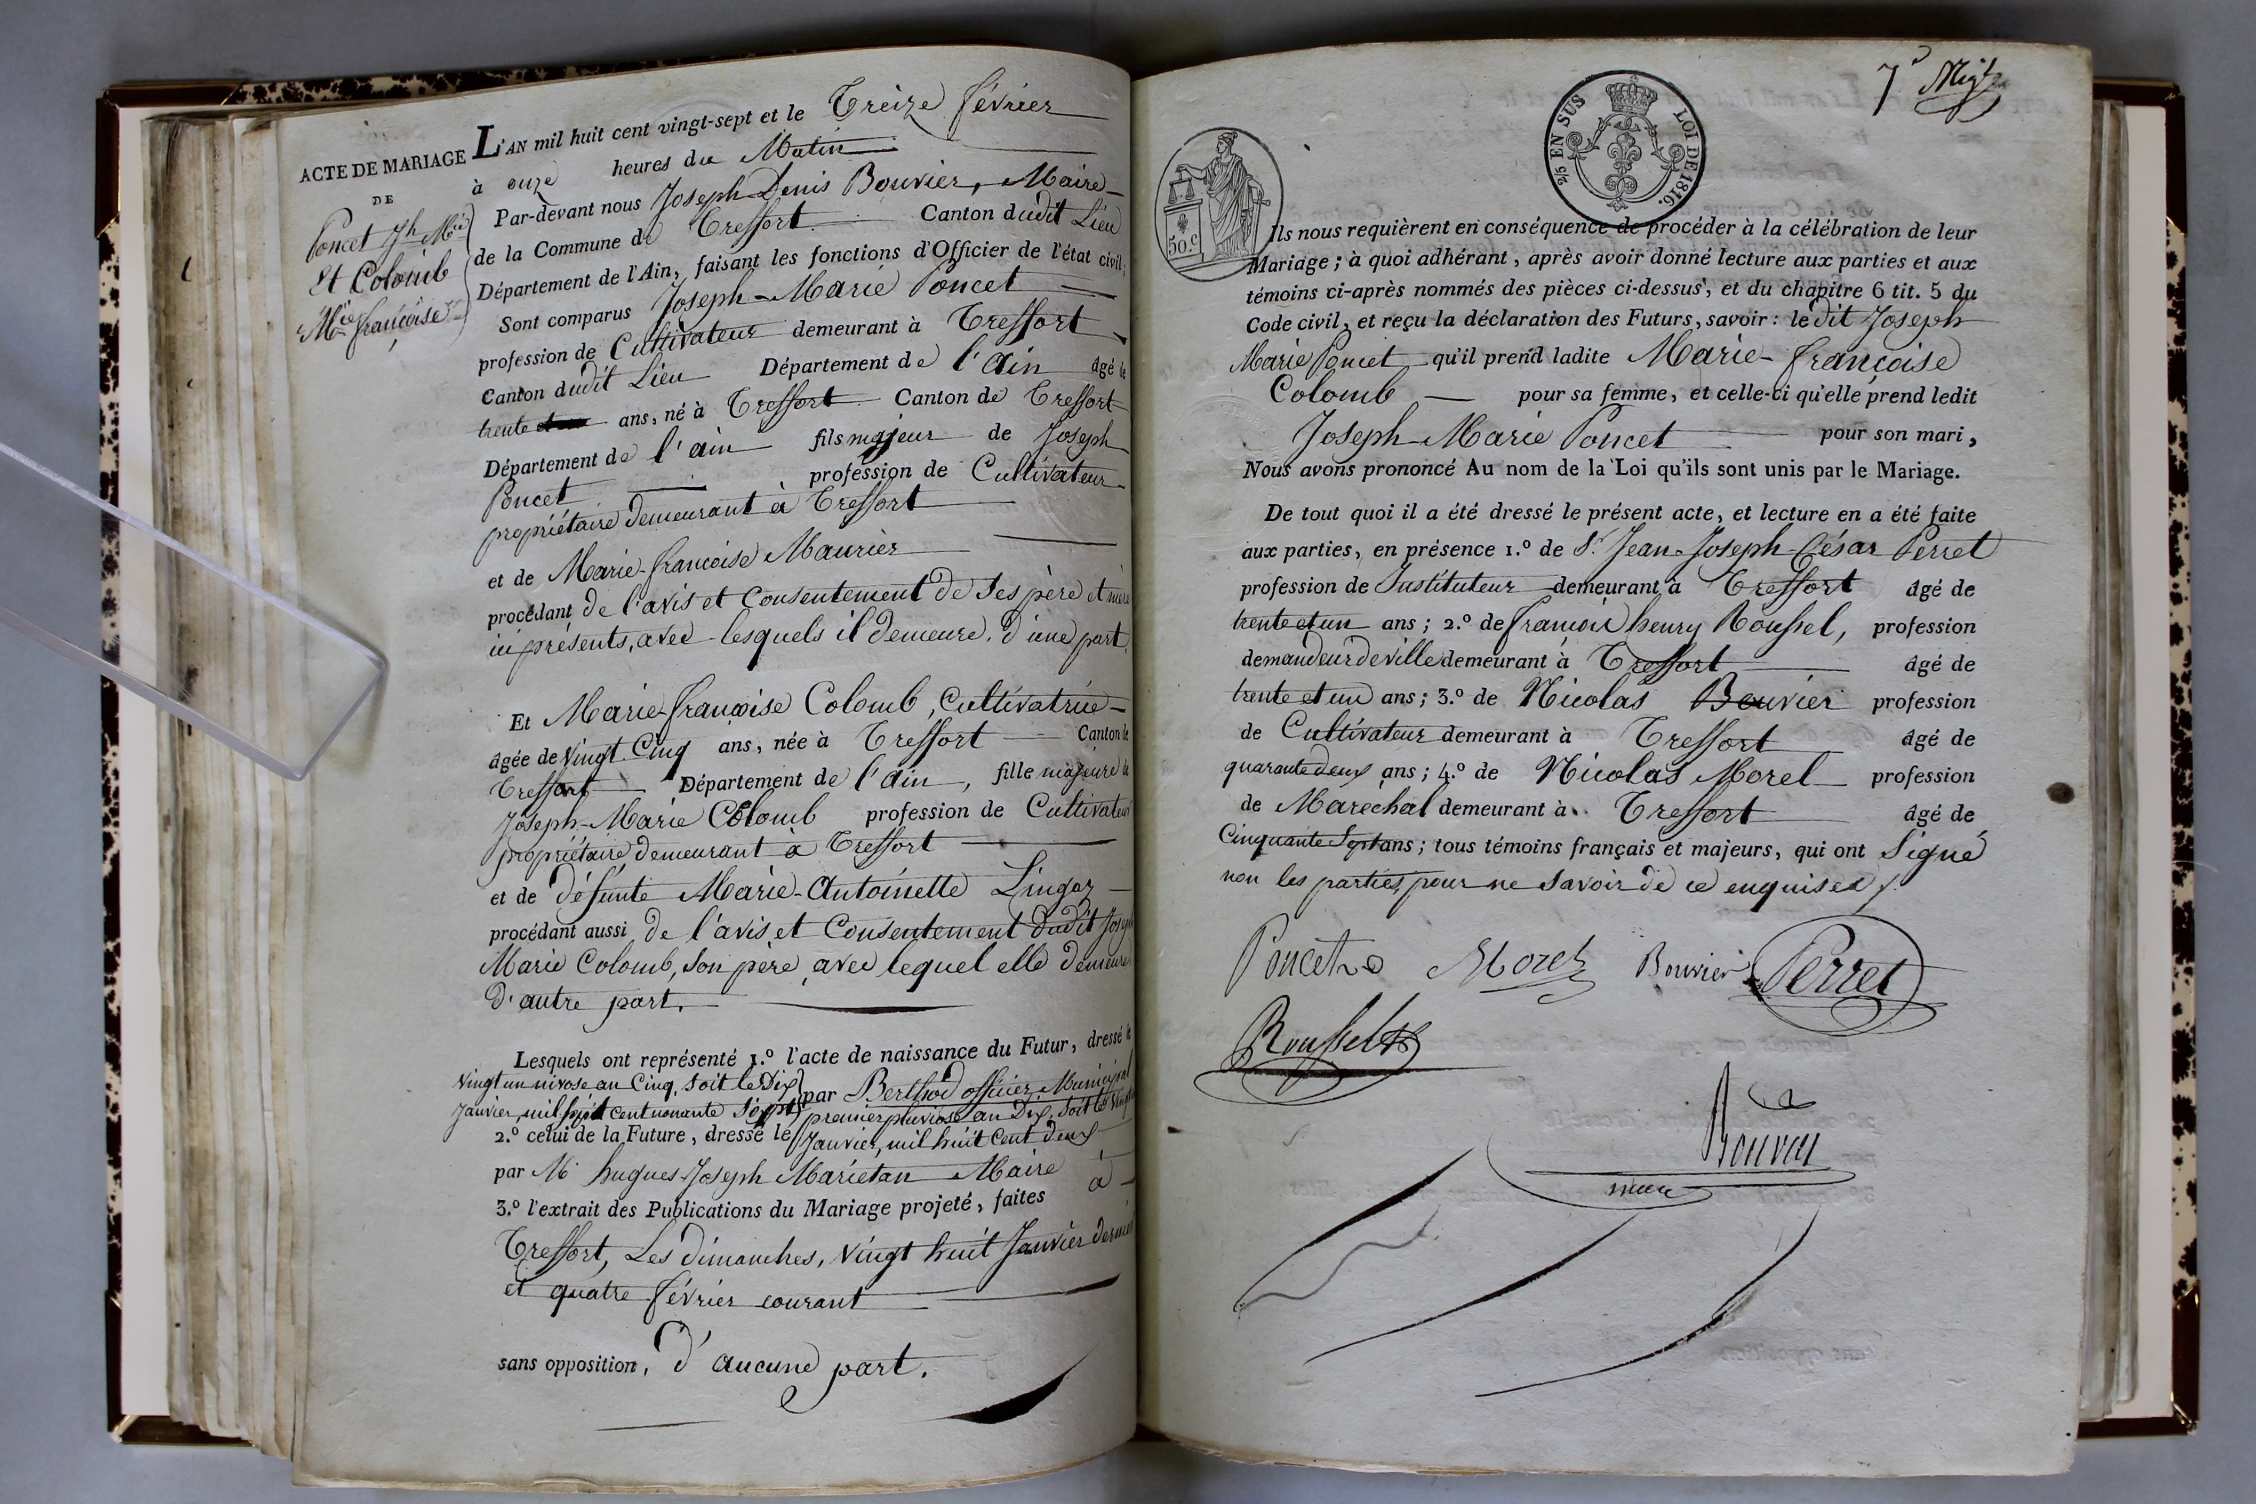 ACTE DE MARIAGE
DE
Poncet Jh Mie
Et Colomb
Mie françoise
L'AN mil huit cent vingt-sept et le Treize février
à onze heures du Matin
Par-devant nous Joseph Denis Bouvier, Maire
de la Commune de Treffort Canton dudit Lieu
Département de l'Ain, faisant les fonctions d'Officier de l'état civil,
Sont comparus Joseph-Marie Poncet
profession de Cultivateur demeurant à Treffort
Canton dudit Lieu Département de l'ain âgé de
trente ans, né à Treffort Canton de Treffort
Département de l'ain fils majeur de Joseph
Poncet profession de Cultivateur
propriétaire demeurant à Treffort
et de Marie-françoise Maurier
procédant de l'avis et Consentement de ses père et mère
ici présents, avec lesquels il demeure, d'une part.
Et Marie-françoise Colomb, Cultivatrice
âgée de vingt-Cinq ans, née à Treffort Canton de
Treffort Département de l'ain, fille majeure de
Joseph-Marie Colomb profession de Cultivateur
propriétaire demeurant à Treffort
et de défunte Marie-Antoinette Lingoz
procédant aussi de l'avis et Consentement dudit Joseph
Marie Colomb, son père, avec lequel elle demeure
d'autre part.
Lesquels ont représenté 1.º l'acte de naissance du Futur, dressé le
vingt un nivose an Cinq, soit le Dix
Janvier, mil sept cent nonante Sept par Berthod officier Municipal
2.º celui de la Future, dressé le premier pluviose an Dix, soit le vingt un
Janvier, mil huit Cent deux
par Mr hugues-Joseph Marietan Maire
3.º l'extrait des Publications du Mariage projeté, faites à
Treffort, Les dimanches, vingt huit Janvier dernier
et quatre février courant
sans opposition, d'aucune part.
7e Mige
2/5 EN SUS LOI DE 1816.
50.c
Ils nous requièrent en conséquence de procéder à la célébration de leur
Mariage ; à quoi adhérant, après avoir donné lecture aux parties et aux
témoins ci-après nommés des pièces ci-dessus, et du chapitre 6 tit. 5 du
Code civil, et reçu la déclaration des Futurs, savoir : le dit Joseph
Marie Poncet qu'il prend ladite Marie-françoise
Colomb pour sa femme, et celle-ci qu'elle prend ledit
Joseph-Marie Poncet pour son mari,
Nous avons prononcé Au nom de la Loi qu'ils sont unis par le Mariage.
De tout quoi il a été dressé le présent acte, et lecture en a été faite
aux parties, en présence 1.º de Sr Jean-Joseph-César Perret
profession de Instituteur demeurant à Treffort âgé de
trente et un ans ; 2.º de françois henry Roussel, profession
de mandeur de ville demeurant à Treffort âgé de
trente et un ans ; 3.º de Nicolas Bouvier profession
de Cultivateur demeurant à Treffort âgé de
quarante deux ans ; 4.º de Nicolas Morel profession
de Maréchal demeurant à Treffort âgé de
Cinquante Sept ans ; tous témoins français et majeurs, qui ont Signé
non les parties, pour ne savoir de ce enquises
Poncet Morel Bouvier Perret
Roussel
Bouvier
maire